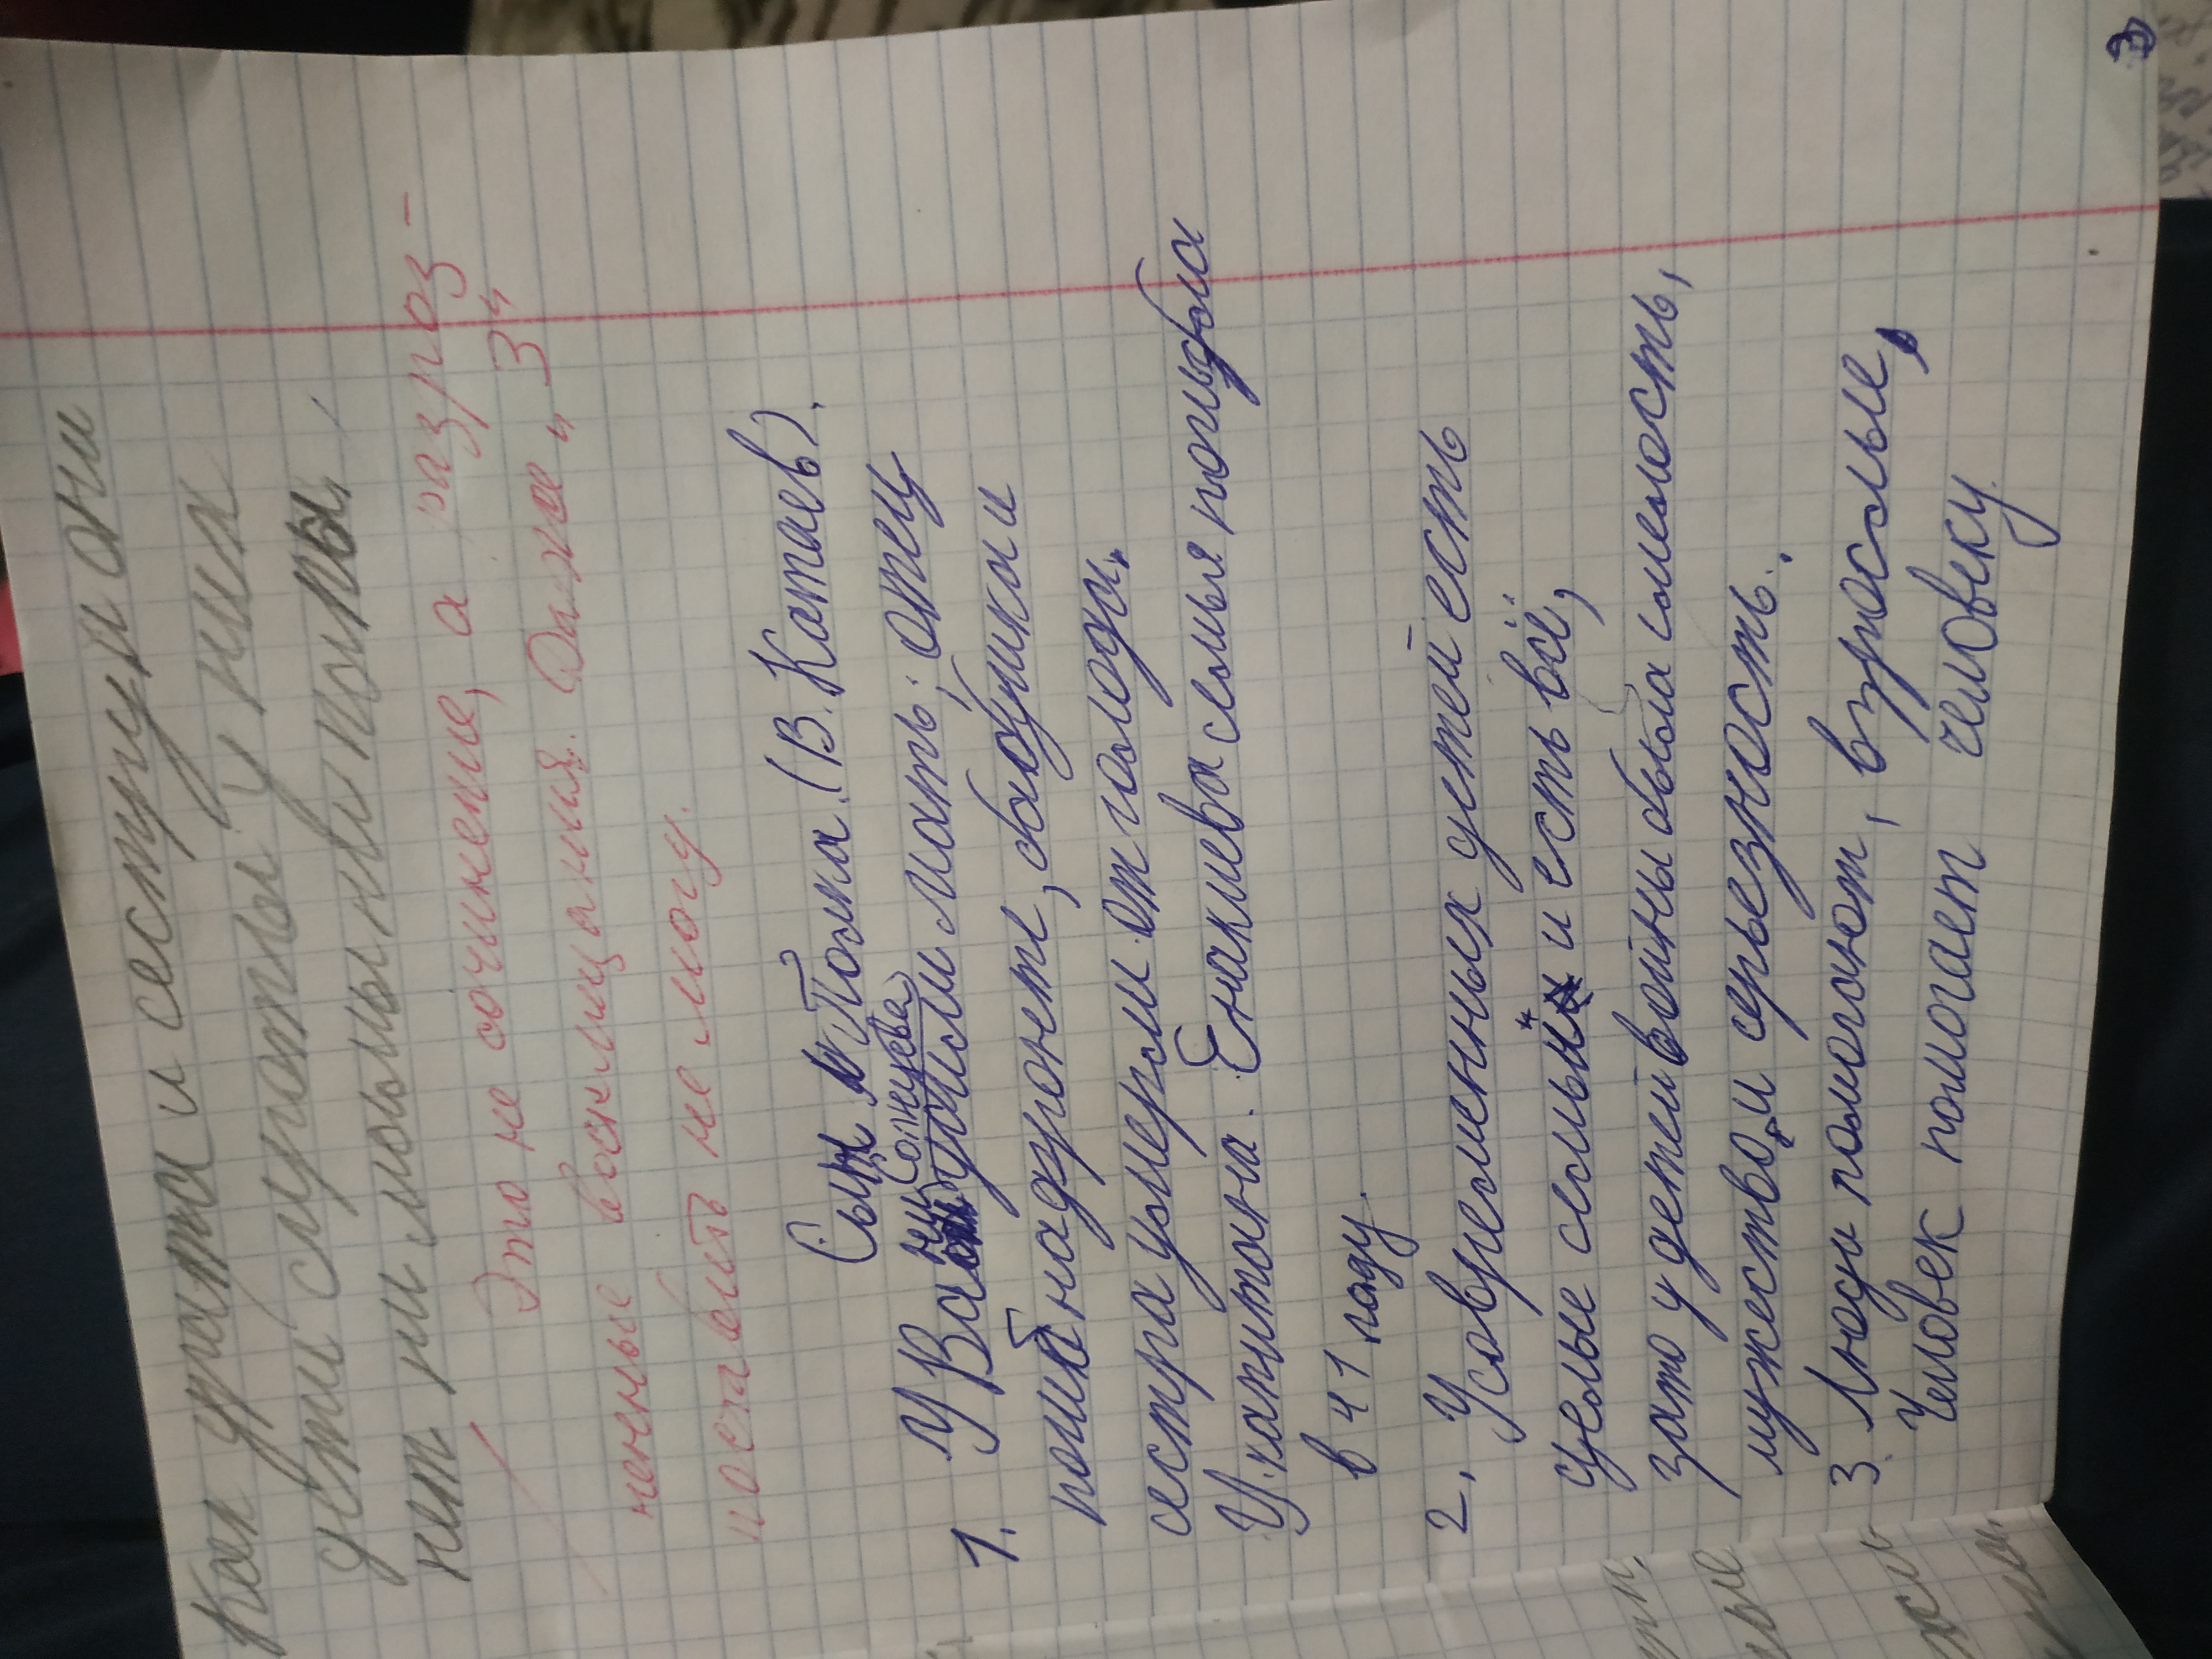 Как драта и сестру и они
дети сироты у них
нет ни мамы ни папы.
Это не сочинение, а разроз-
ненные восклицания. Даже „3"
поставить не могу.
Сын Полка. (В. Катаев).
1. У Вани Солнцева
умили мать, отец
погиб на фронте, бабушка и
сестра умерли от голода.
У капитана Енакиева семья погибла
в 41 году.
2. У современных детей есть
целые семьи и есть всё,
зато у детей войны была смелость,
мужество и серьезность.
3. Люди помогают, взрослые,
Человек помогает человеку.
3